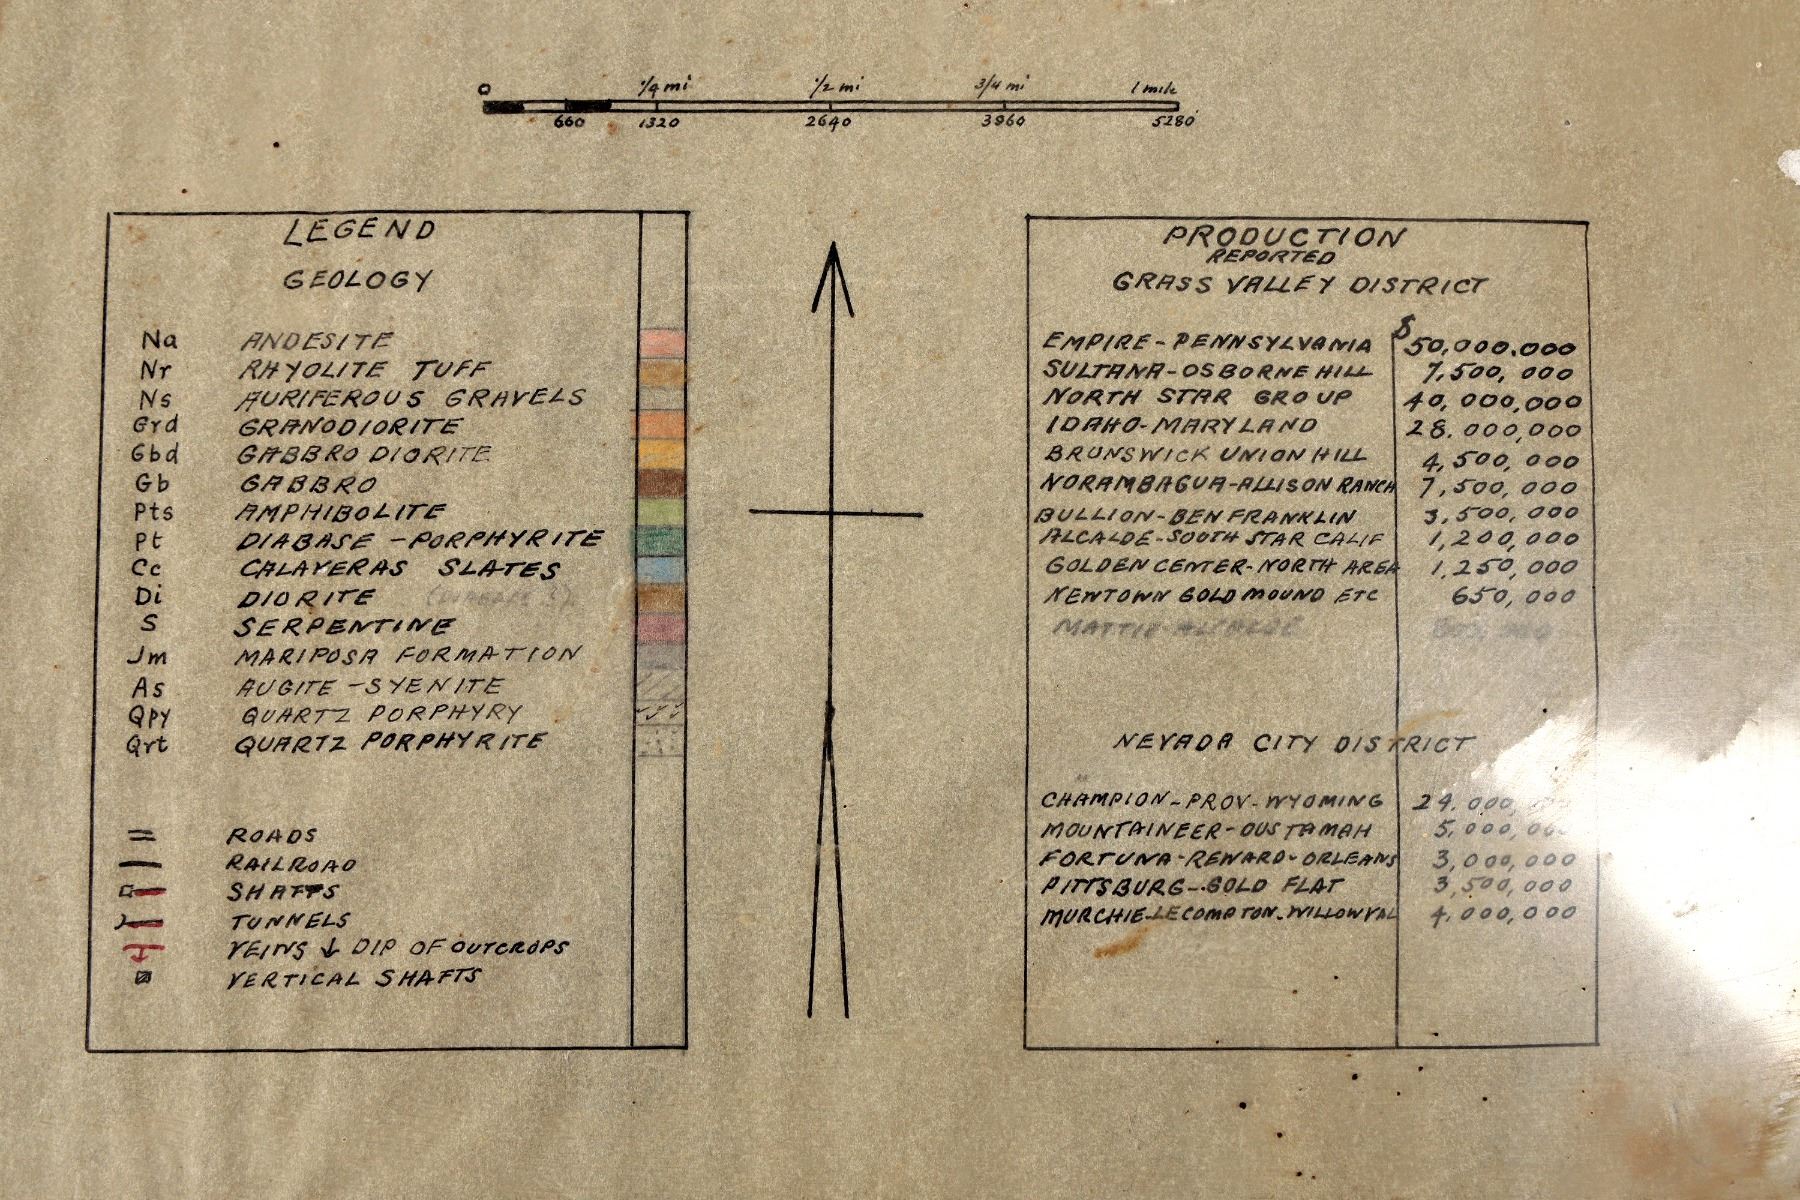 0 1/4 mi 1/2 mi 3/4 mi 1 mile
660 1320 2640 3960 5280'
LEGEND
GEOLOGY
Na ANDESITE
Nr RHYOLITE TUFF
Ns AURIFEROUS GRAVELS
Grd GRANODIORITE
Gbd GABBRO DIORITE
Gb GABBRO
Pts AMPHIBOLITE
Pt DIABASE - PORPHYRITE
Cc CALAVERAS SLATES
Di DIORITE
S SERPENTINE
Jm MARIPOSA FORMATION
As AUGITE - SYENITE
Qpy QUARTZ PORPHYRY
Qrt QUARTZ PORPHYRITE
ROADS
RAILROAD
SHAFTS
TUNNELS
VEINS ↓ DIP OF OUTCROPS
VERTICAL SHAFTS
PRODUCTION
REPORTED
GRASS VALLEY DISTRICT
EMPIRE - PENNSYLVANIA $50,000.000
SULTANA - OSBORNE HILL 7,500,000
NORTH STAR GROUP 40,000,000
IDAHO - MARYLAND 28.000,000
BRUNSWICK UNION HILL 4,500,000
NORAMBAGUA - ALLISON RANCH 7,500,000
BULLION - BEN FRANKLIN 3,500,000
ALCALDE - SOUTH STAR CALIF 1,200,000
GOLDEN CENTER - NORTH AREA 1,250,000
NEWTOWN GOLD MOUND ETC 650,000
NEVADA CITY DISTRICT
CHAMPION - PROV - WYOMING 24.000,000
MOUNTAINEER - OUSTAMAH 5,000,000
FORTUNA - REWARD - ORLEANS 3,000,000
PITTSBURG - GOLD FLAT 3,500,000
MURCHIE - LECOMPTON - WILLOW VAL 4,000,000